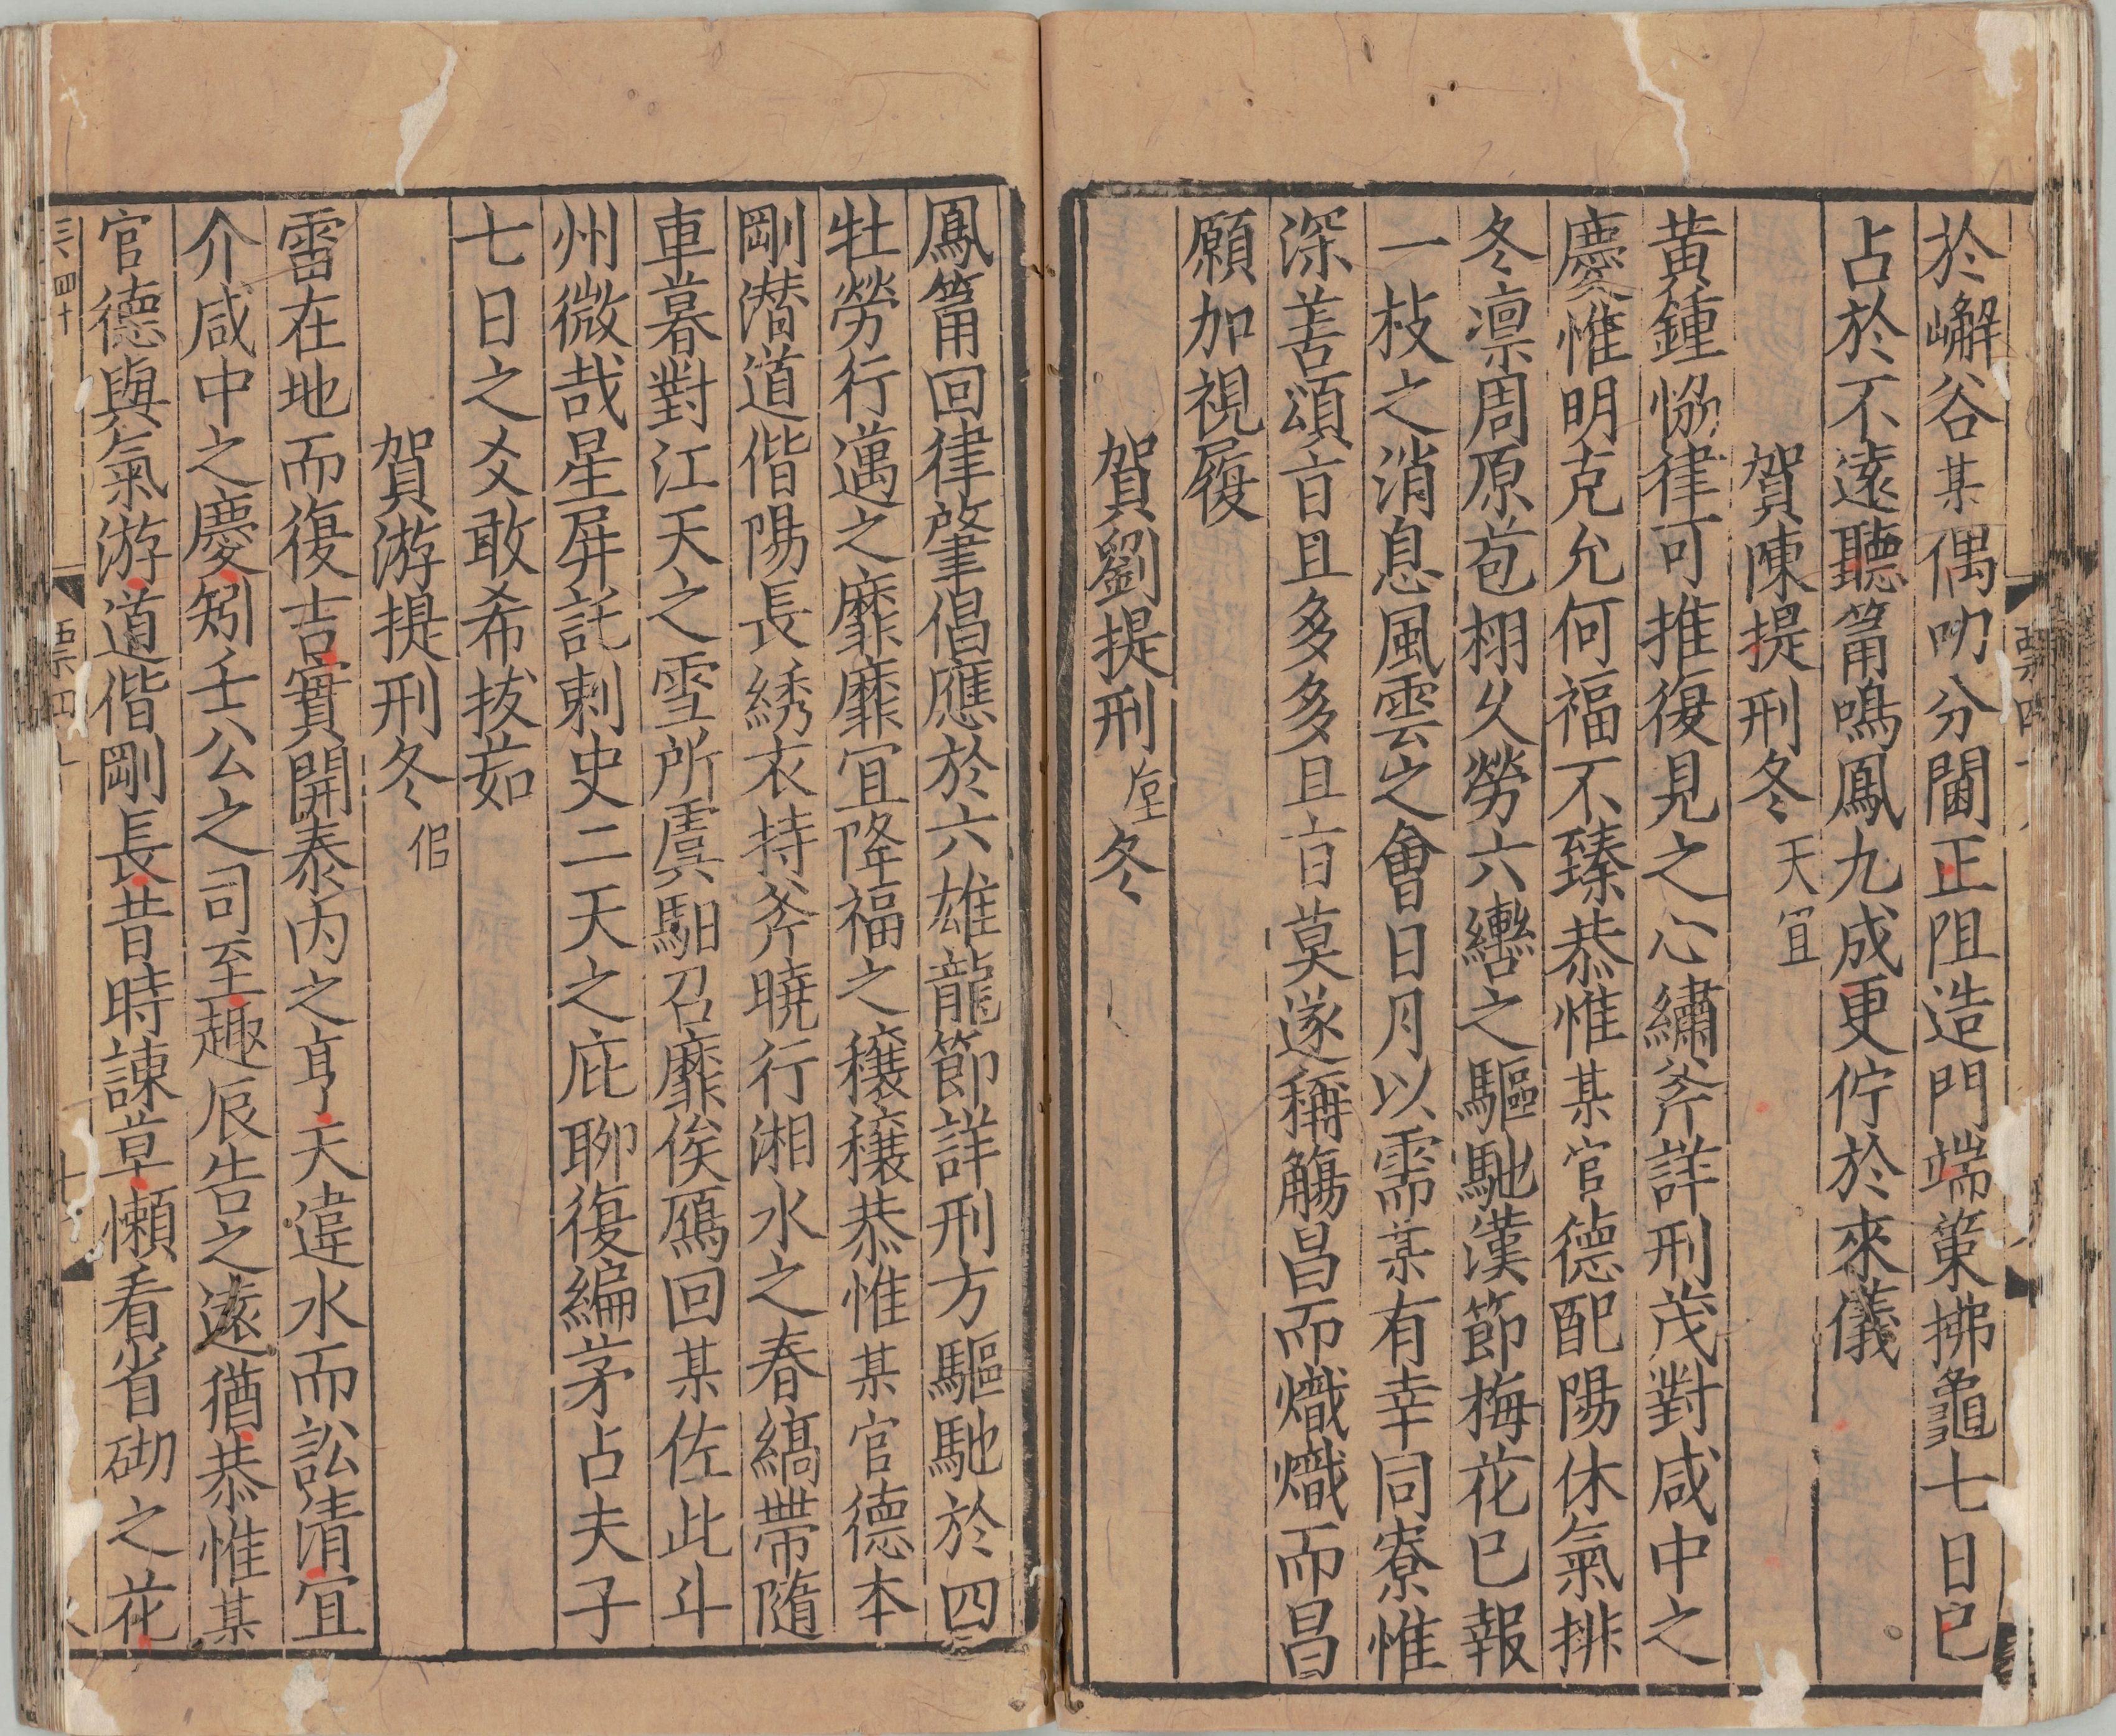 於嶰谷某偶叨分閫正阻造門端策拂龜七日已
占於不遠聽筩鳴鳳九成更佇於來儀
賀陳提刑冬天宜
黃鍾恊律可推復見之心繡斧詳刑茂對咸中之
慶惟明克允何福不臻恭惟某官德配陽休氣排
冬凛周原苞栩久勞六轡之驅馳漢節梅花已報
一枝之消息風雲之會日月以需某有幸同寮惟
深善頌亯且多多且亯莫遂稱觴昌而熾熾而昌
願加視履
賀劉提刑㙶冬
鳳筩回律肇倡應於六雄龍節詳刑方驅馳於四
牡勞行邁之靡靡宜降福之穰穰恭惟某官德本
剛潜道偕陽長綉衣持斧曉行湘水之春縞帶隨
車暮對江天之雪所虞馹召靡俟鴈回某佐此斗
州微哉星屏託刺史二天之庇聊復編茅占夫子
七日之爻敢希拔茹
賀游提刑冬佀
雷在地而復吉實開泰內之亨天違水而訟清宜
介咸中之慶矧壬公之司至趣辰告之遠猶恭惟某
官德與氣游道偕剛長昔時諫草懶看省砌之花